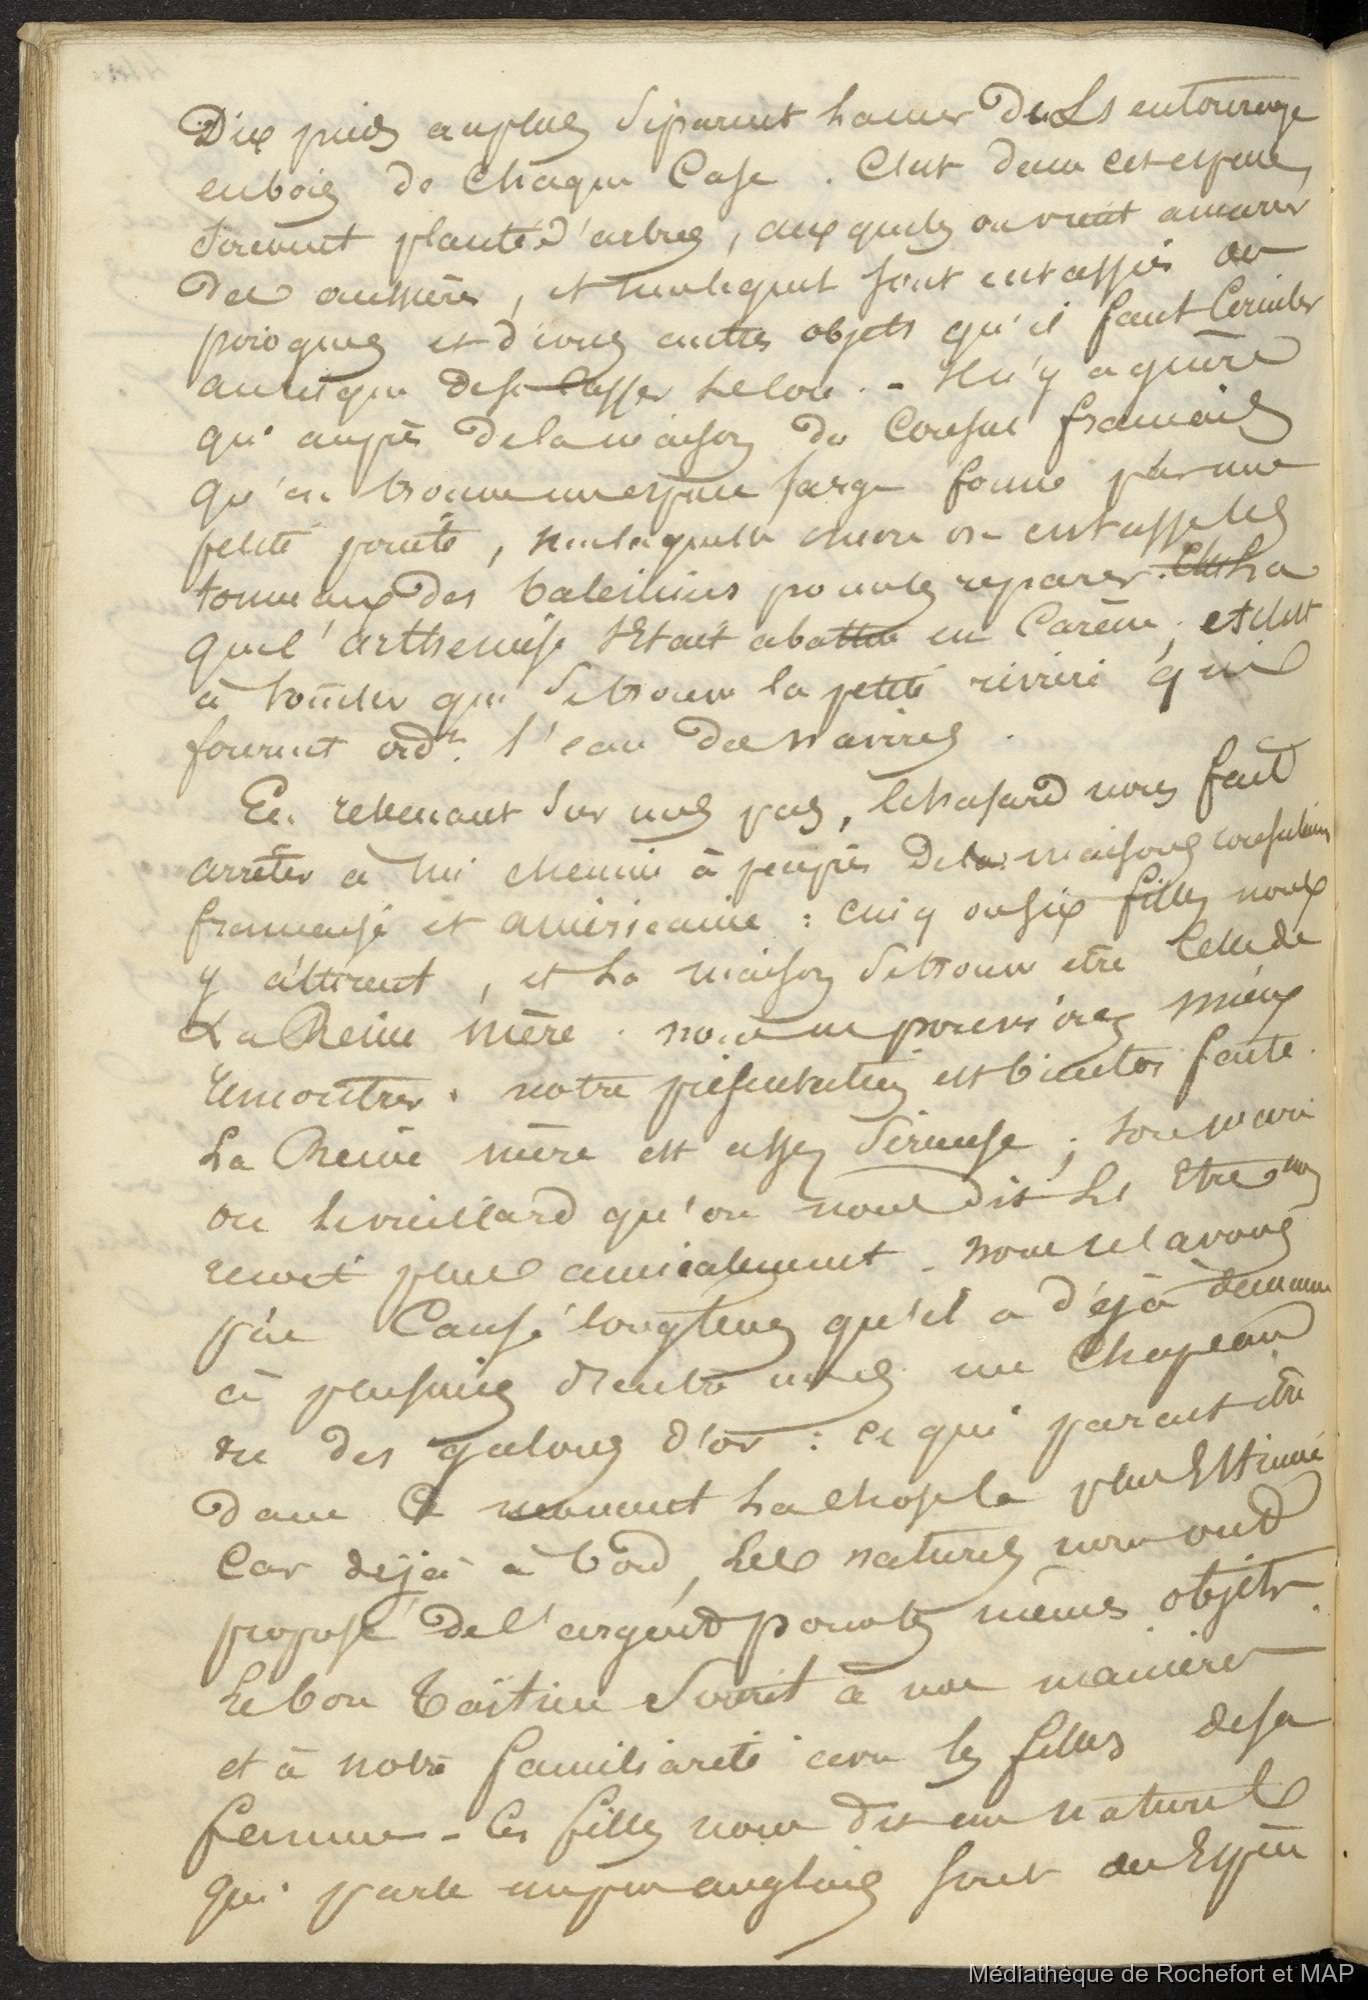 Dix pieds au plus séparent la mer de Ls entourage
en bois de chaque case. C'est dans cet espace,
souvent planté d'arbres, auxquels on vient amarer
des aussières, et sur lequel sont entassées des
pirogues et divers autres objets qu'il faut
au risque de se casser le cou. - Il n'y a guère
qu'auprès de la maison du Consul français
qu'on trouve un espace large formé par une
petite pointe, sur laquelle encore on entasse les
tonneaux des baleiniers pour les réparer. C'est là
que l'Arthemise s'était abattue en carène, et c'est
à toucher que se trouve la petite rivière qui
fournit ordt. l'eau des navires.
En revenant sur nos pas, le hasard nous fait
arrêter à mi chemin à peu près de las maisons consulaires
française et américaine : cinq ou six filles nous
y attirent, et la maison se trouve être celle de
La Reine mère. nous ne pouvions mieux
rencontrer. notre présentation est bientôt faite.
La Reine mère est assez sérieuse ; son mari
ou le vieillard qu'on nous dit les être nous
reçoit plus amicalement - nous n'avons
pas causé longtems qu'il a déjà demandé
à plusieurs d'entre nous un chapeau
ou des galons d'or : ce qui parait être
dans ce moment la chose la plus estimée
car déjà à bord, les naturels nous ont
proposé de l'argent pour les mêmes objets.
Le bon Taïtien sourit à nos manières
et à notre familiarité avec les filles de sa
femme - les filles nous dit un naturel
qui parle un peu anglais sont au
Médiathèque de Rochefort et MAP